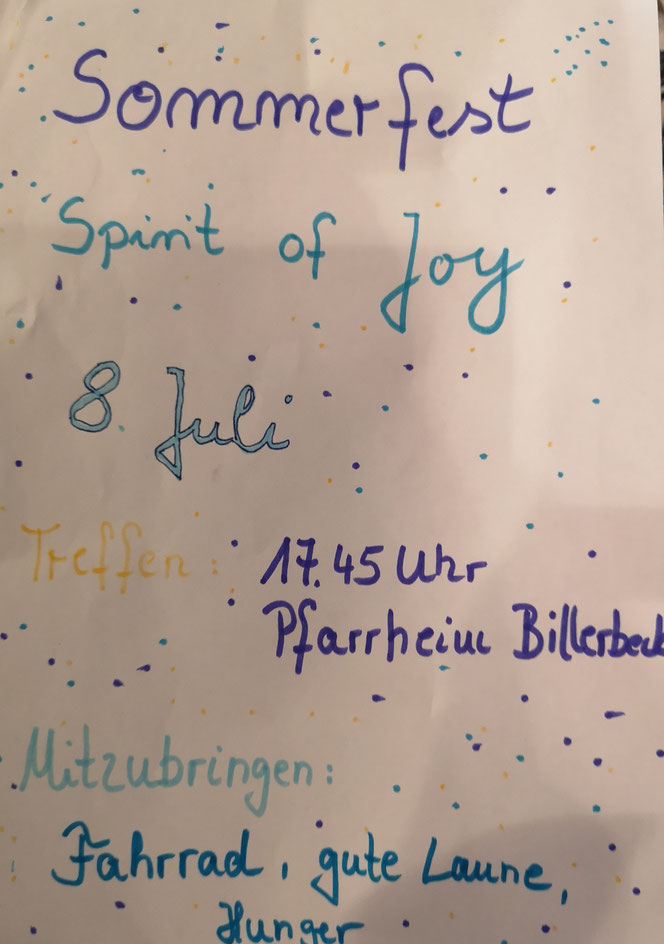 Sommerfest
Spirit of Joy
8. Juli
Treffen: 17.45 Uhr
Pfarrheim Billerbeck
Mitzubringen:
Fahrrad, gute Laune,
Hunger